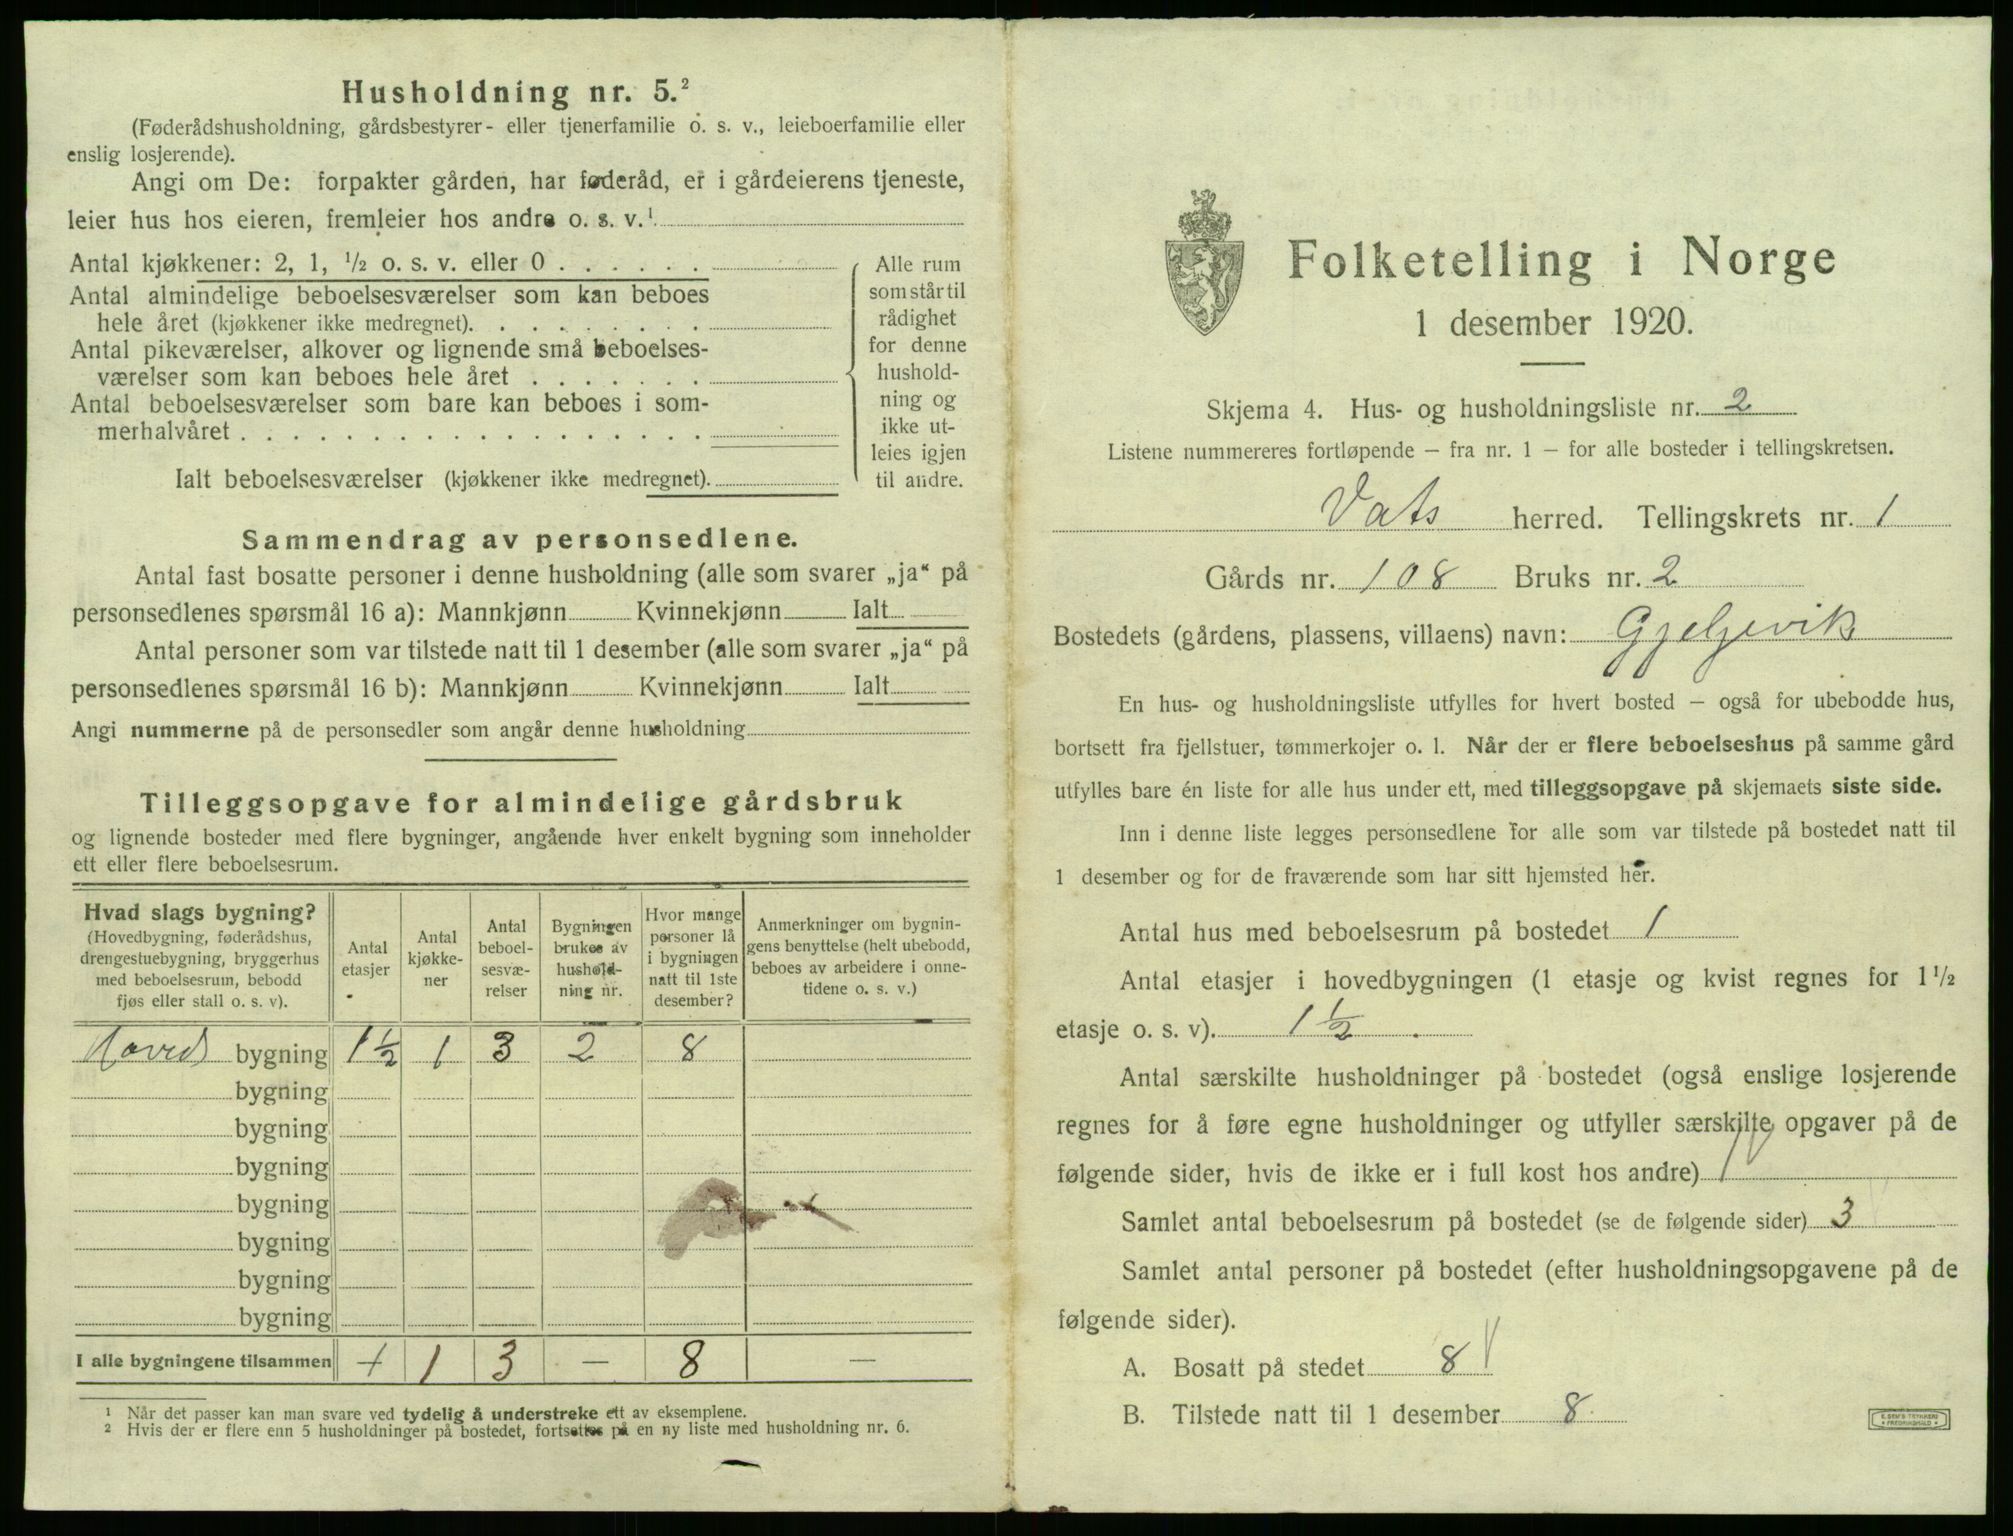 Husholdning nr. 5.²
(Føderådshusholdning, gårdsbestyrer- eller tjenerfamilie o. s. v., leieboerfamilie eller
enslig losjerende).
Angi om De: forpakter gården, har føderåd, er i gårdeierens tjeneste,
leier hus hos eieren, fremleier hos andre o. s. v.¹
Antal kjøkkener: 2, 1, ½ o. s. v. eller 0 . . . . . .
Antal almindelige beboelsesværelser som kan beboes
hele året (kjøkkener ikke medregnet). . . . . . . . .
Antal pikeværelser, alkover og lignende små beboelses-
værelser som kan beboes hele året . . . . . . .
Antal beboelsesværelser som bare kan beboes i som-
merhalvåret . . . . . . . . . . . . . . . . . .
Ialt beboelsesværelser (kjøkkener ikke medregnet).
Alle rum
som står til
rådighet
for denne
hushold-
ning og
ikke ut-
leies igjen
til andre.
Sammendrag av personsedlene.
Antal fast bosatte personer i denne husholdning (alle som svarer „ja“ på
personsedlenes spørsmål 16 a): Mannkjønn Kvinnekjønn Ialt
Antal personer som var tilstede natt til 1 desember (alle som svarer „ja“ på
personsedlenes spørsmål 16 b): Mannkjønn Kvinnekjønn Ialt
Angi nummerne på de personsedler som angår denne husholdning
Tilleggsopgave for almindelige gårdsbruk
og lignende bosteder med flere bygninger, angående hver enkelt bygning som inneholder
ett eller flere beboelsesrum.
Hvad slags bygning?
(Hovedbygning, føderådshus,
drengestuebygning, bryggerhus
med beboelsesrum, bebodd
fjøs eller stall o. s. v).
Antal
etasjer
Antal
kjøkke-
ner
Antal
beboel-
sesvæ-
relser
Bygningen
brukes av
hushold-
ning nr.
Hvor mange
personer lå
i bygningen
natt til 1ste
desember?
Anmerkninger om bygnin-
gens benyttelse (helt ubebodd,
beboes av arbeidere i onne-
tidene o. s. v.)
Hoved bygning 1½ 1 3 2 8
bygning
bygning
bygning
bygning
bygning
bygning
bygning
I alle bygningene tilsammen + 1 3 — 8 —
¹ Når det passer kan man svare ved tydelig å understreke ett av eksemplene.
² Hvis der er flere enn 5 husholdninger på bostedet, fortsettes på en ny liste med husholdning nr. 6.
Folketelling i Norge
1 desember 1920.
Skjema 4. Hus- og husholdningsliste nr. 2
Listene nummereres fortløpende – fra nr. 1 – for alle bosteder i tellingskretsen.
Vats herred. Tellingskrets nr. 1
Gårds nr. 108 Bruks nr. 2
Bostedets (gårdens, plassens, villaens) navn: Gjeljevik
En hus- og husholdningsliste utfylles for hvert bosted – også for ubebodde hus,
bortsett fra fjellstuer, tømmerkojer o. l. Når der er flere beboelseshus på samme gård
utfylles bare én liste for alle hus under ett, med tilleggsopgave på skjemaets siste side.
Inn i denne liste legges personsedlene for alle som var tilstede på bostedet natt til
1 desember og for de fraværende som har sitt hjemsted her.
Antal hus med beboelsesrum på bostedet 1
Antal etasjer i hovedbygningen (1 etasje og kvist regnes for 1½
etasje o. s. v). 1½.
Antal særskilte husholdninger på bostedet (også enslige losjerende
regnes for å føre egne husholdninger og utfyller særskilte opgaver på de
følgende sider, hvis de ikke er i full kost hos andre) 1
Samlet antal beboelsesrum på bostedet (se de følgende sider) 3
Samlet antal personer på bostedet (efter husholdningsopgavene på de
følgende sider).
A. Bosatt på stedet 8
B. Tilstede natt til 1 desember 8
E. SEM'S TRYKKERI
FREDRIKSHALD